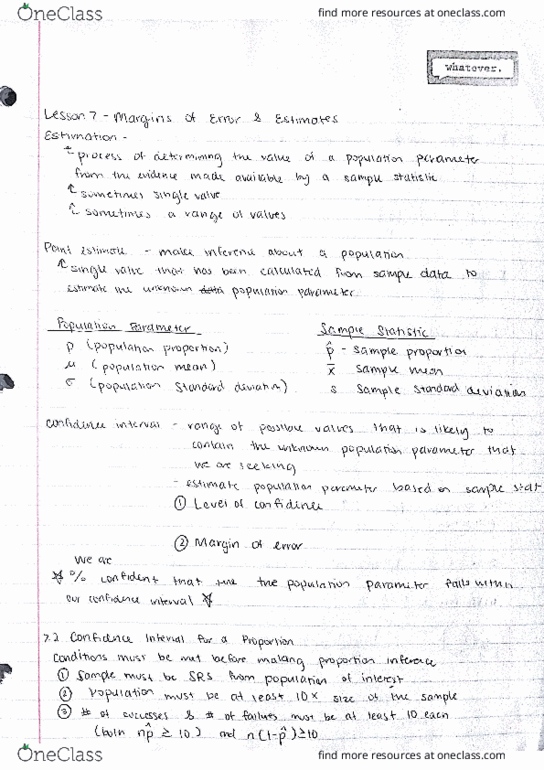 OneClass
find more resources at oneclass.com
whatever.
Lesson 7 - Margins of Error & Estimates
Estimation -
↑ process of determining the value of a population parameter
from the evidence made available by a sample statistic
↑ sometimes single value
↑ sometimes a range of values
Point Estimate - make inference about a population
↑ single value that has been calculated from sample data to
estimate the unknown data population parameter
Population Parameter
Sample Statistic
p (population proportion)
p̂ - sample proportion
μ (population mean)
x̄ sample mean
σ (population standard deviation)
s sample standard deviation
confidence interval - range of possible values that is likely to
contain the unknown population parameter that
we are seeking
- estimate population parameter based on sample stat
① Level of confidence
② Margin of error
we are
☆ % confident that the population parameter falls within
our confidence interval ☆
7.2 Confidence Interval for a Proportion
Conditions must be met before making proportion inference
① Sample must be SRS from population of interest
② Population must be at least 10x size of the sample
③ # of successes & # of failures must be at least 10 each
(both np̂ ≥ 10) and n(1-p̂) ≥ 10
OneClass
find more resources at oneclass.com